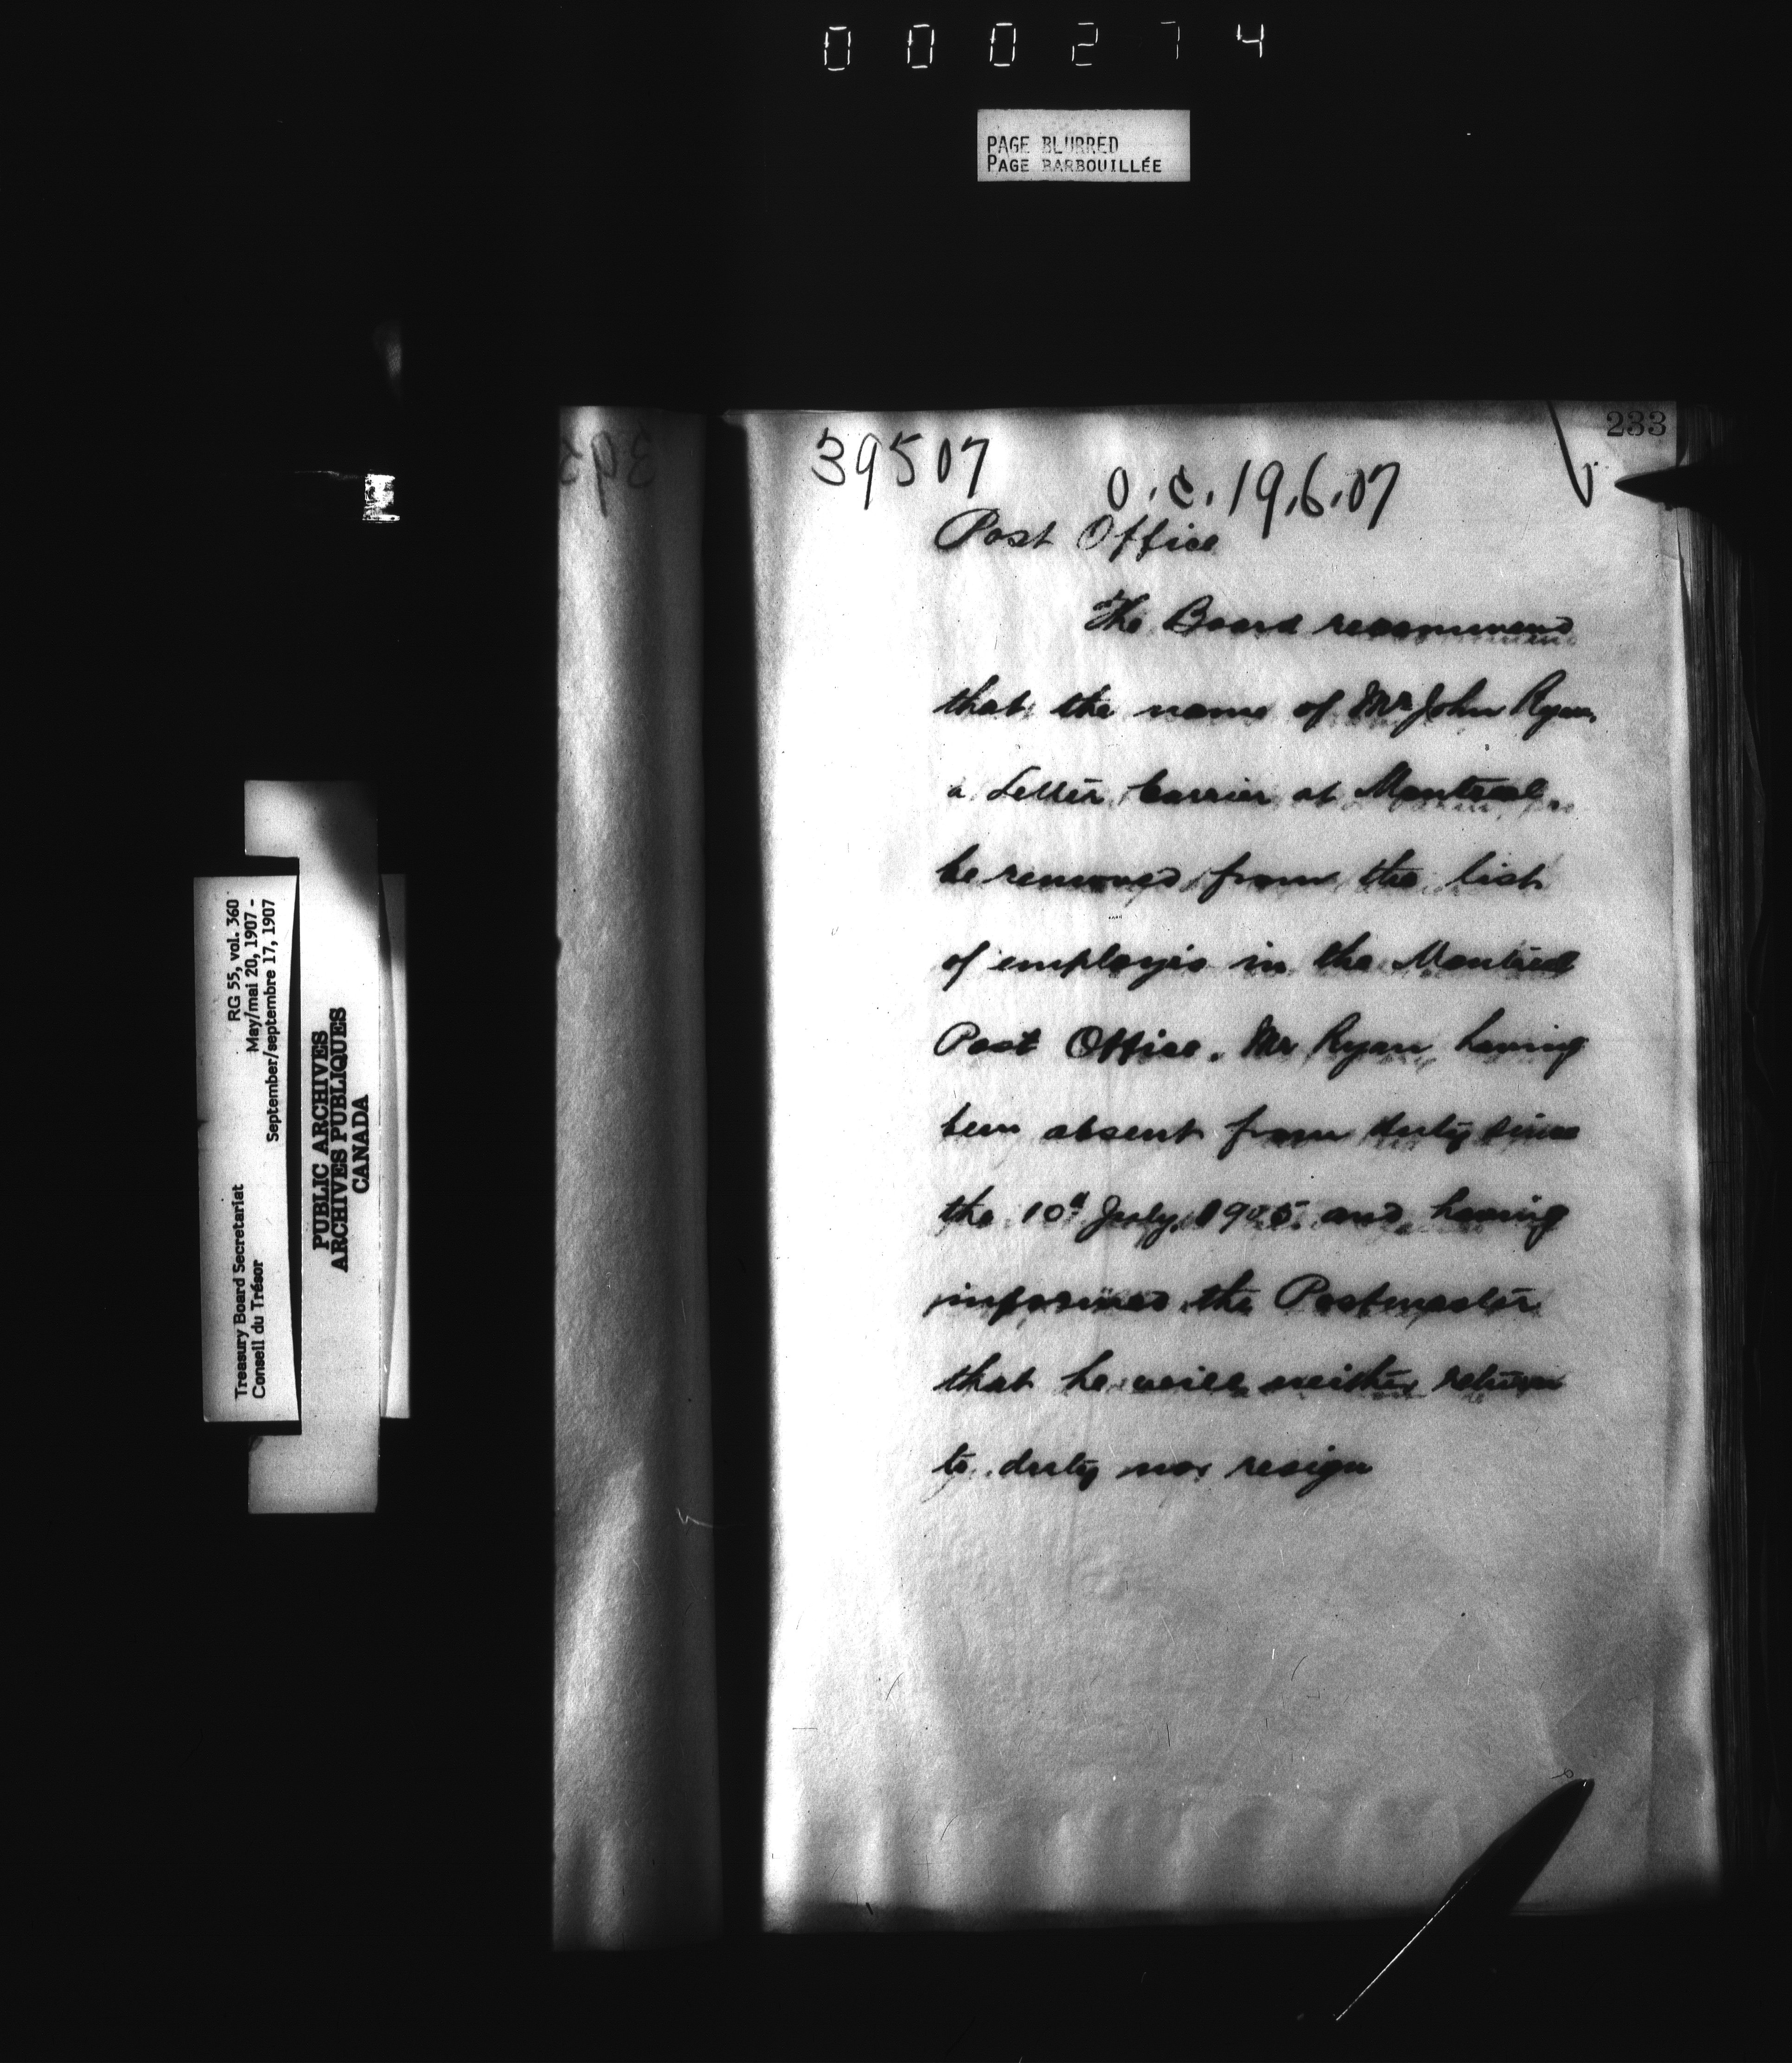 000274
PAGE BLURRED
PAGE BARBOUILLÉE
233
39507
O.C. 19.6.07
Post Office
The Board recommend
that the name of Mr John Ryan,
a Letter Carrier at Montreal,
be removed from the list
of employés in the Montreal
Post Office, Mr Ryan having
been absent from duty since
the 10th July, 1905 and having
informed the Postmaster
that he will neither return
to duty nor resign
Treasury Board Secretariat RG 55, vol. 360
Conseil du Trésor May/mai 20, 1907 -
September/septembre 17, 1907
PUBLIC ARCHIVES
ARCHIVES PUBLIQUES
CANADA